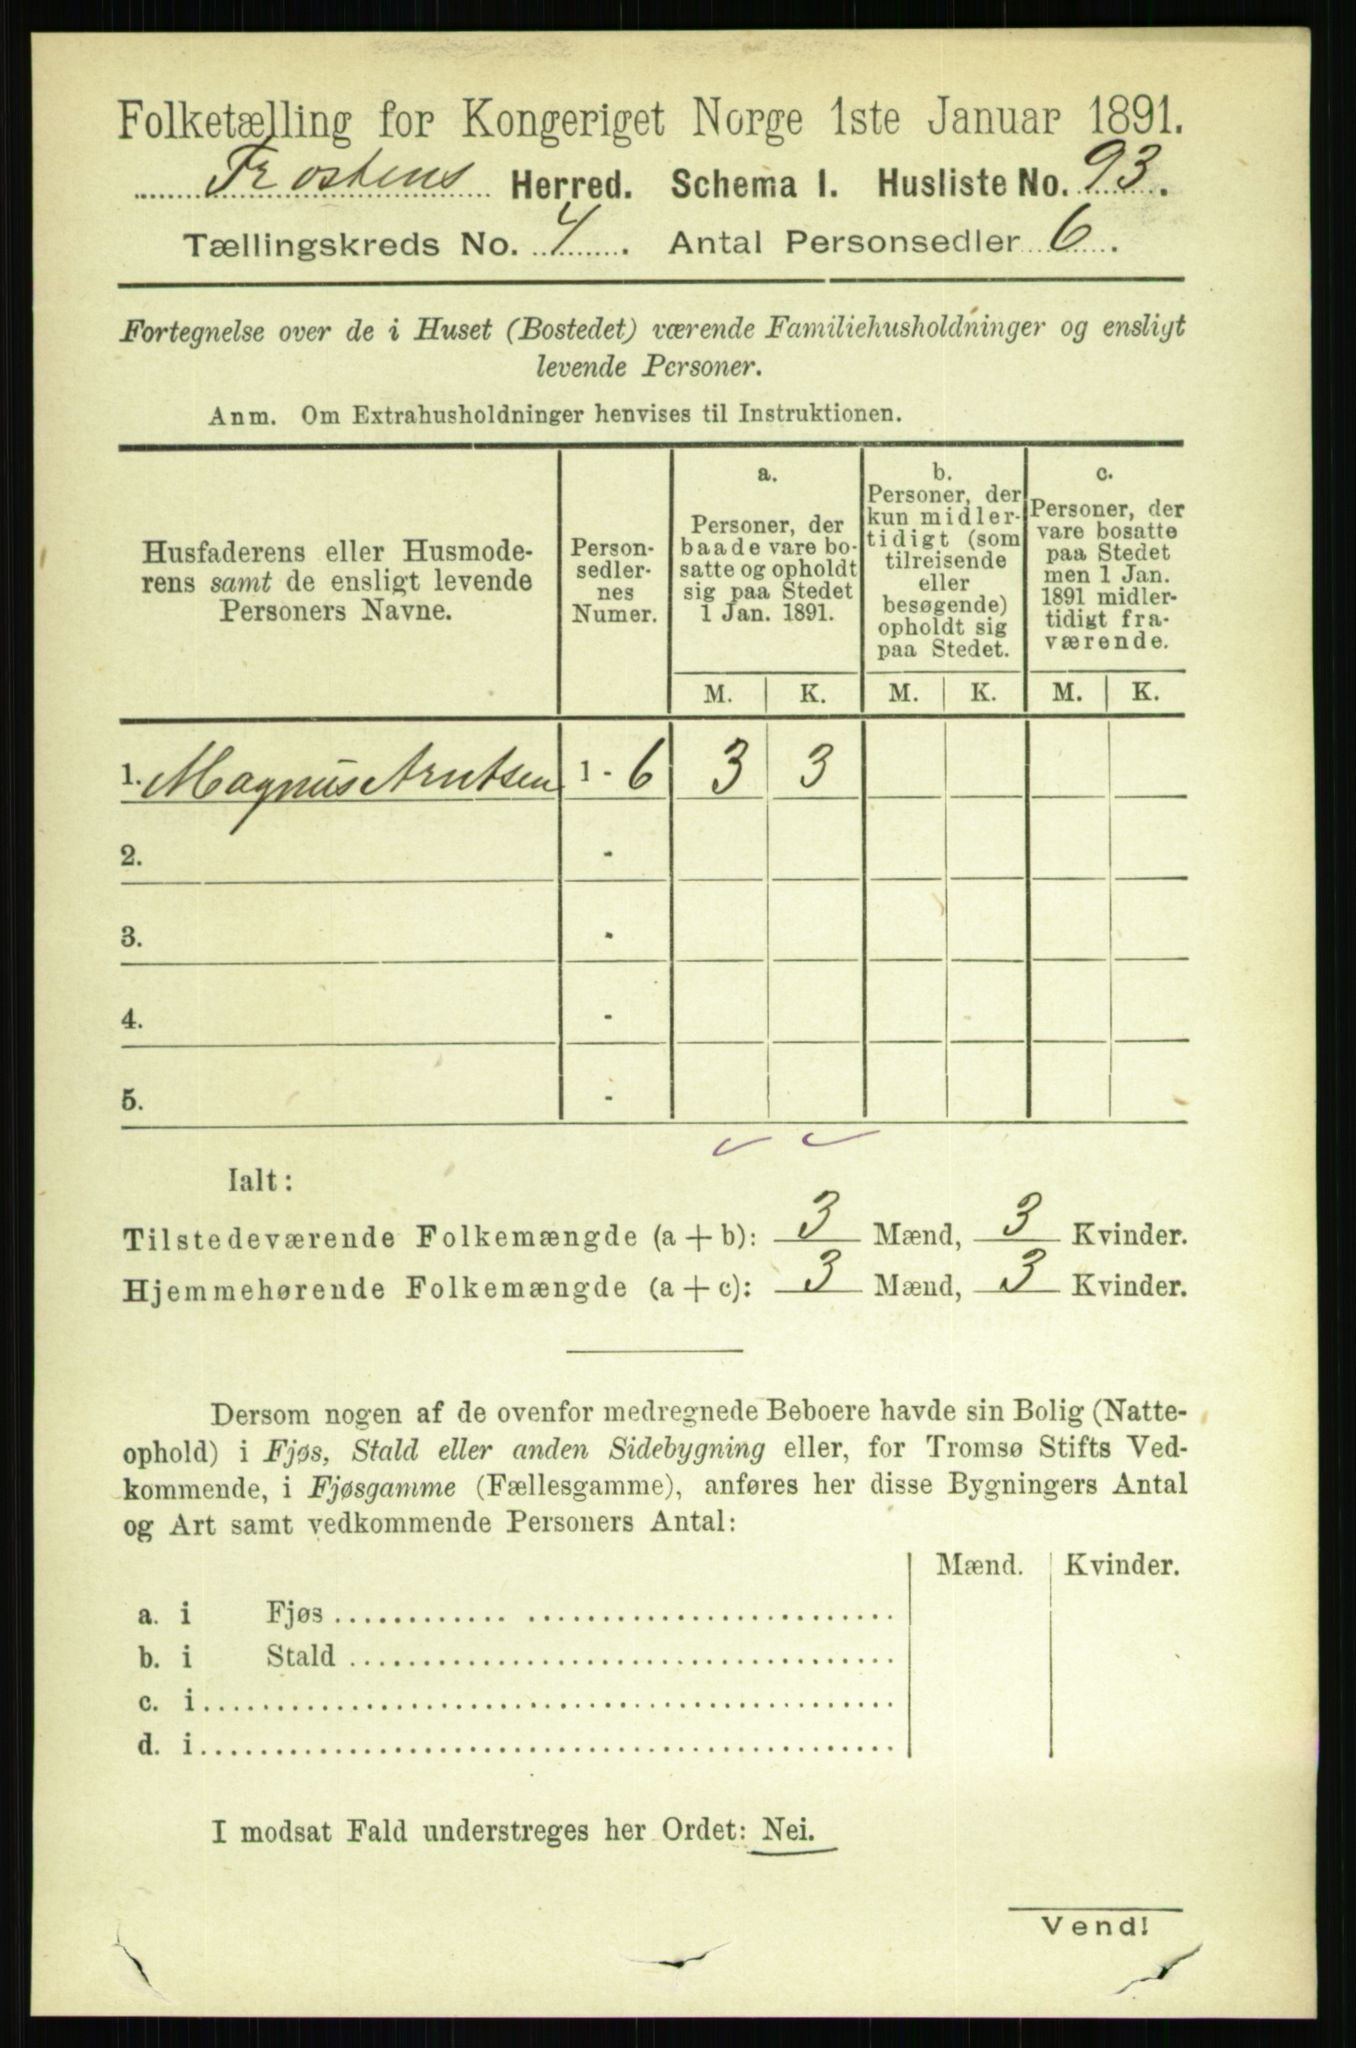 Folketælling for Kongeriget Norge 1ste Januar 1891.
Frostens Herred. Schema 1. Husliste No. 93.
Tællingskreds No. 4. Antal Personsedler 6.
Fortegnelse over de i Huset (Bostedet) værende Familiehusholdninger og ensligt
levende Personer.
Anm. Om Extrahusholdninger henvises til Instruktionen.
Husfaderens eller Husmode-
rens samt de ensligt levende
Personers Navne.
Person-
sedler-
nes
Numer.
a.
Personer, der
baade vare bo-
satte og opholdt
sig paa Stedet
1 Jan. 1891.
b.
Personer, der
kun midler-
tidigt (som
tilreisende
eller
besøgende)
opholdt sig
paa Stedet.
c.
Personer, der
vare bosatte
paa Stedet
men 1 Jan.
1891 midler-
tidigt fra-
værende.
M. K. M. K. M. K.
1. Magnus Arntsen 1 - 6 3 3
2. -
3. -
4. -
5. -
Ialt:
Tilstedeværende Folkemængde (a + b): 3 Mænd, 3 Kvinder.
Hjemmehørende Folkemængde (a + c): 3 Mænd, 3 Kvinder.
Dersom nogen af de ovenfor medregnede Beboere havde sin Bolig (Natte-
ophold) i Fjøs, Stald eller anden Sidebygning eller, for Tromsø Stifts Ved-
kommende, i Fjøsgamme (Fællesgamme), anføres her disse Bygningers Antal
og Art samt vedkommende Personers Antal:
Mænd. Kvinder.
a. i Fjøs
b. i Stald
c. i
d. i
I modsat Fald understreges her Ordet: Nei.
Vend!